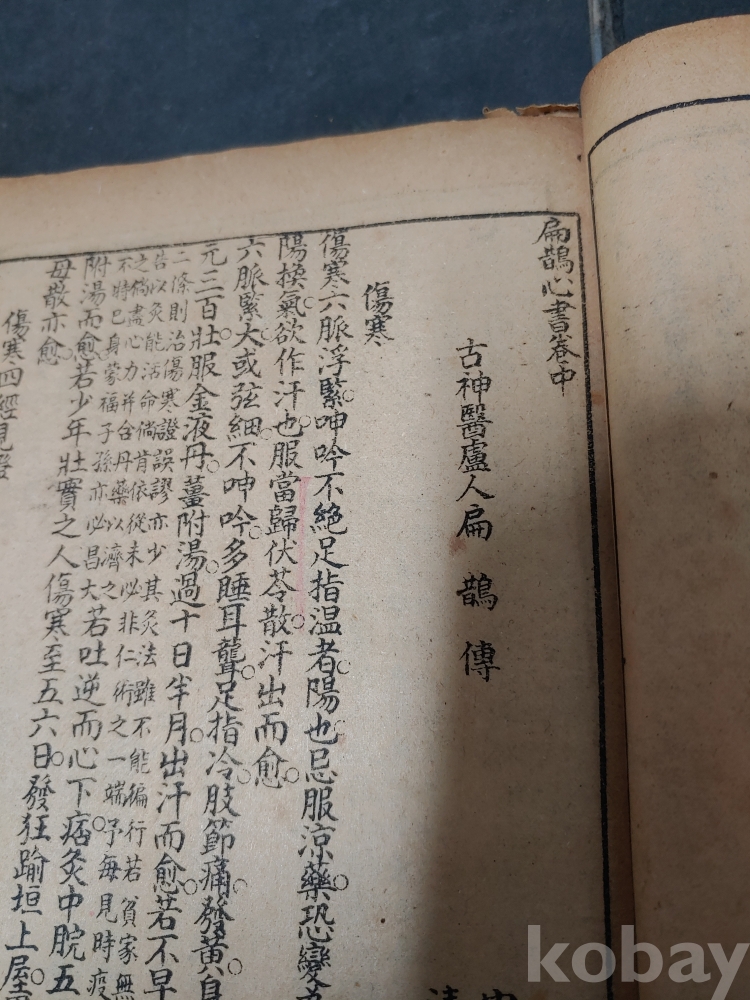 扁鵲心書卷中
古神醫盧人扁鵲傳
傷寒
傷寒六脈浮緊呻吟不絕足指溫者陽也忌服涼藥恐變為
陽換氣欲作汗也服當歸伏苓散汗出而愈
六脈緊大或弦細不呻吟多睡耳聾足指冷肢節痛發黃身
元三百壯服金液丹薑附湯過十日半月出汗而愈若不早
二條則治傷寒證誤謬亦少其灸法雖不能徧行若貧家無
告以灸能活命倘肯依從未必非仁術之一端予每見時疫
之倘盡心力并合丹藥以濟之
不特已身蒙福子孫亦必昌大若吐逆而心下痞灸中脘五
附湯而愈若少年壯實之人傷寒至五六日發狂踰垣上屋
母散亦愈
傷寒四經見證
kobay